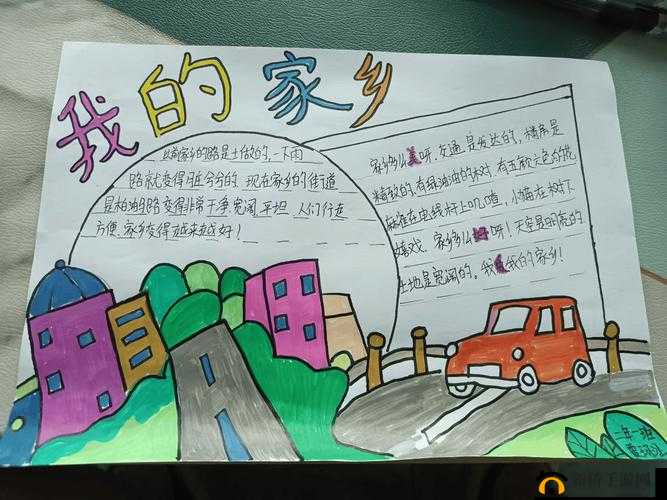 我的家乡
以前家乡的路是土做的,一下雨
路就变得脏兮兮的,现在家乡的街道
是柏油的路变得非常干净宽阔,平坦,人们行走
方便,家乡变得越来越好!
家乡多么美呀,交通是发达的,楼房是
精致的,有绿油油的树,有五颜六色的花
麻雀在电线杆上叽喳,小猫在树下
嬉戏,家乡多么好呀!天空是明亮的
土地是宽阔的,我我的家乡!
二年一班